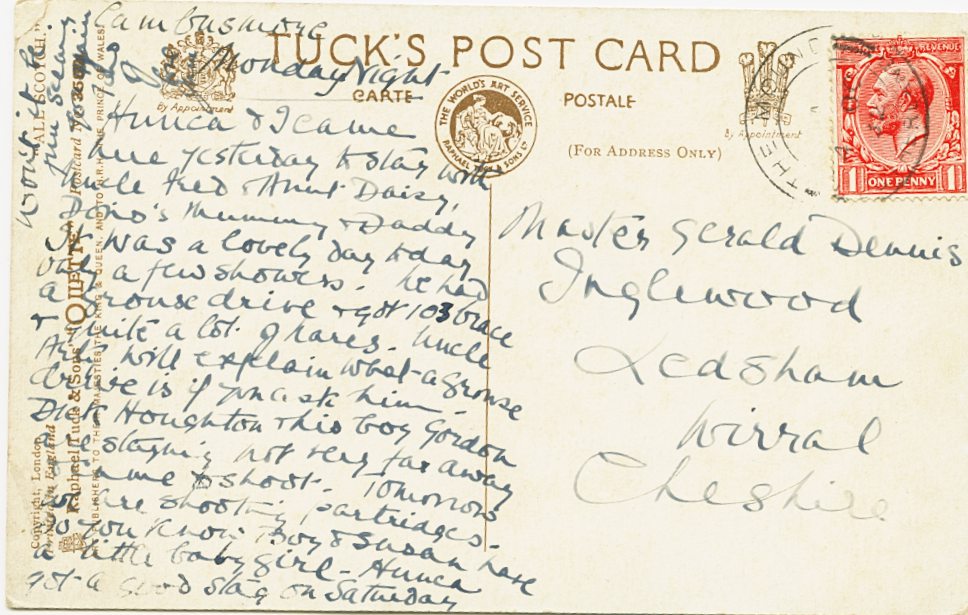 Cambusmore
Monday Night
Hunca & I came
here yesterday to stay with
Uncle Fred & Aunt Daisy,
Mummy & Daddy
It was a lovely day today
only a few showers. We had
a grouse drive & got 103 brace
& quite a lot of hares. Uncle
will explain what a grouse
drive is if you ask him.
Dick Houghton & his boy Gordon
are staying not very far away
& came to shoot. Tomorrow
we are shooting partridges.
Do you know Boy & Susan have
a little baby girl - Hunca
got a good stag on Saturday
Won't it be
fun seeing
you again
TUCK'S POST CARD
CARTE POSTALE
By Appointment
THE WORLD'S ART SERVICE
RAPHAEL TUCK & SONS LTD
(FOR ADDRESS ONLY)
By Appointment
REVENUE
1 ONE PENNY 1
Master Gerald Dennis
Inglewood
Ledsham
Wirral
Cheshire
Raphael Tuck & Sons' "OILETTE"
PUBLISHERS TO THEIR MAJESTIES THE KING & QUEEN, AND TO H.R.H. THE PRINCE OF WALES.
Copyright, London
in England